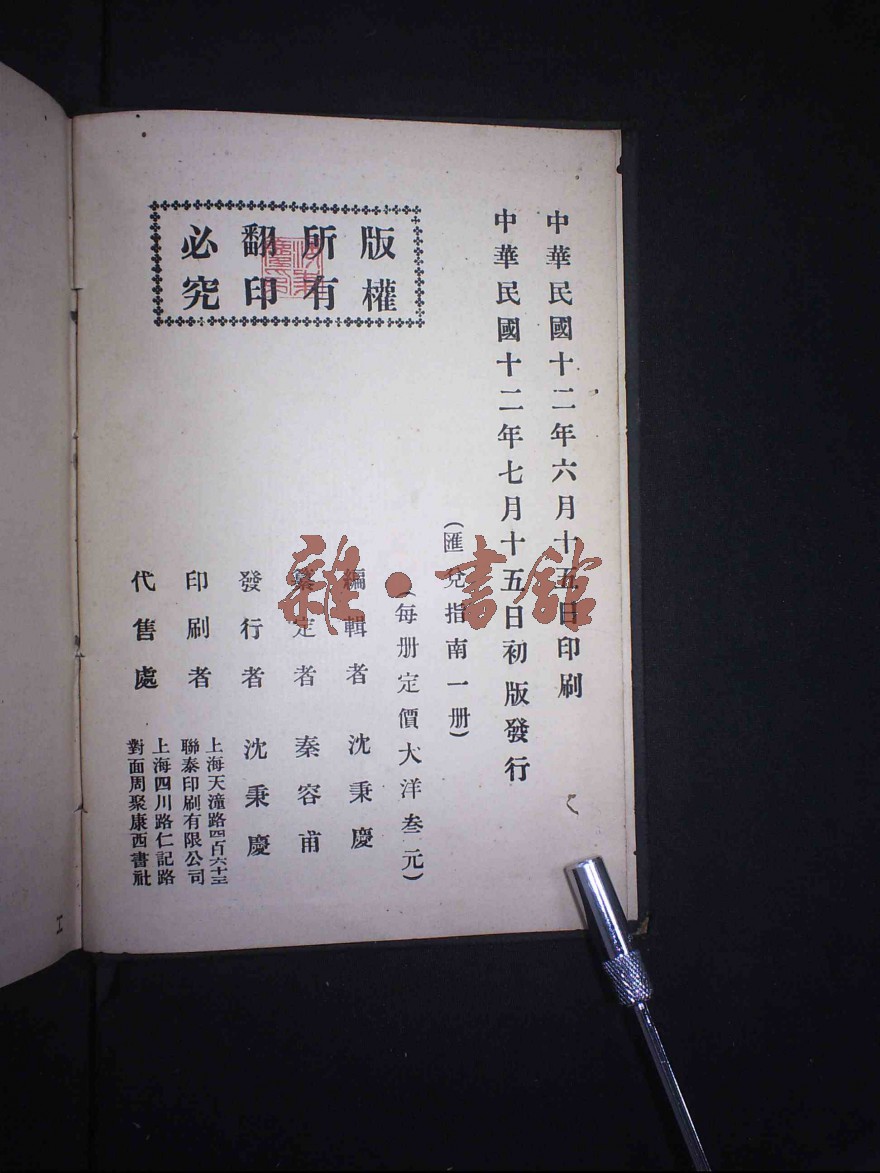 中華民國十二年六月十五日印刷
中華民國十二年七月十五日初版發行
(匯兌指南一册)
(每册定價大洋叁元)
編輯者 沈秉慶
纂定者 秦容甫
發行者 沈秉慶
印刷者 上海天潼路四百六十三
聯泰印刷有限公司
代售處 上海四川路仁記路
對面周聚康西書社
版權
所有
翻印
必究
雜·書館
工